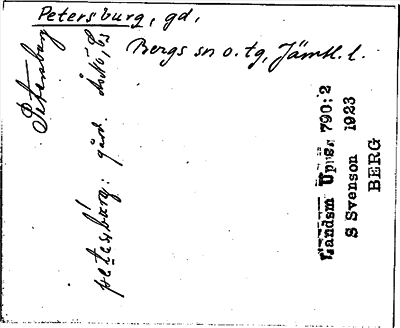 Petersburg, gd,
Bergs sn o. tg, Jämtl. l.
Petersburg
petesbúrg: gård.
Landsm Upps. 790:2
S Svenson 1923
BERG